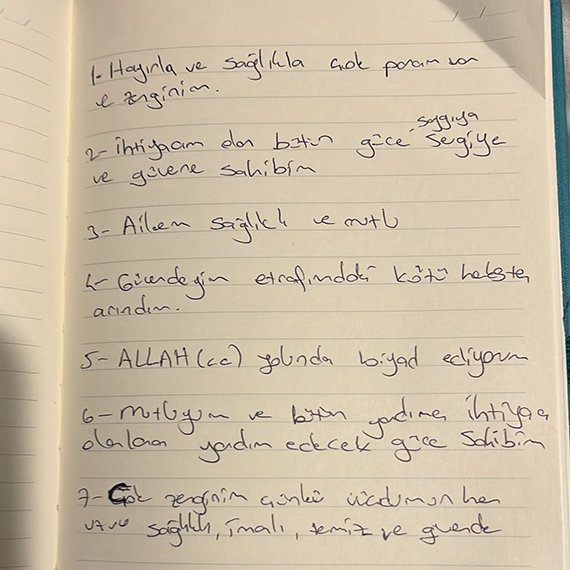 1- Hayırla ve sağlıkla çok param var
ve zenginim.
2- ihtiyacım olan bütün güce saygıya sevgiye
ve güvene sahibim
3- Ailem sağlıklı ve mutlu
4- Güvendeyim etrafımdaki kötü
arındım.
5- ALLAH (cc) yolunda ediyorum
6- mutluyum ve bütün yardıma ihtiyacı
olanlara yardım edecek güce sahibim
7- Çok zenginim çünkü vücudumun her
uzvu sağlıklı, temiz ve güvende